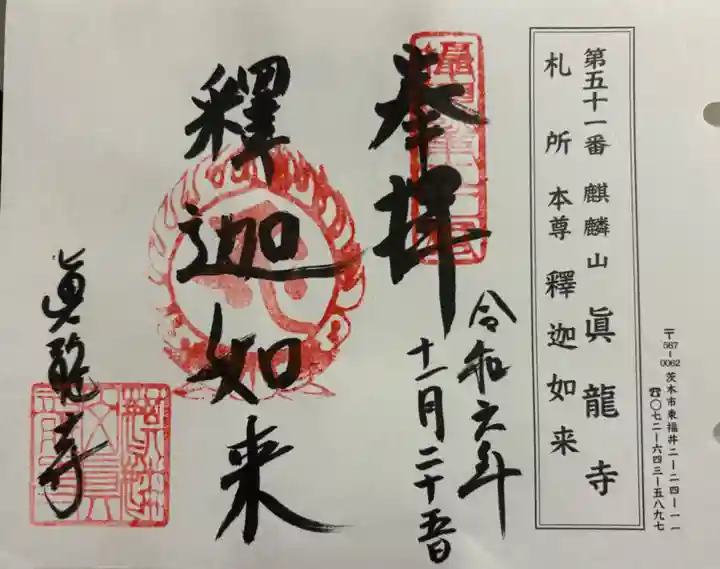 第五十一番 麒麟山 眞龍寺
札所本尊 釋迦如来
〒567-0062 茨木市東福井二-二四-一一
☎〇七二-六四三-五八九七
奉拝
令和六年
十一月二十五日
釋迦如来
眞龍寺